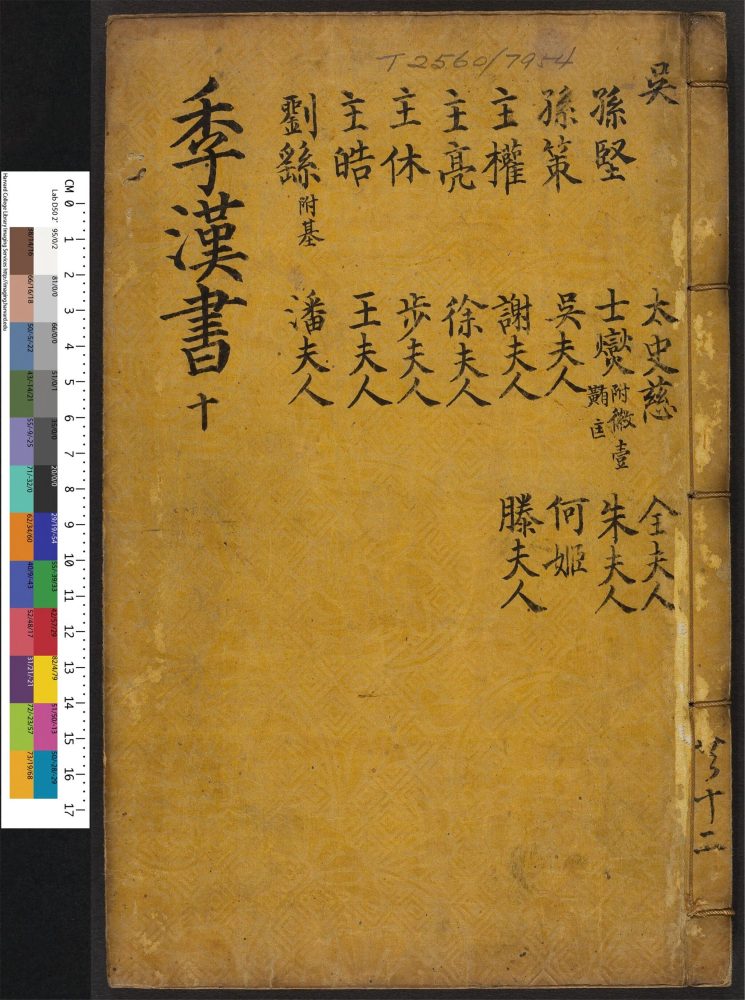 T 2560/7954
吳
孫堅
孫策
主權
主亮
主休
主皓
劉繇 附基
太史慈
士燮 附徽壹
䵋匡
吳夫人
謝夫人
徐夫人
步夫人
王夫人
潘夫人
全夫人
朱夫人
何姬
滕夫人
季漢書 十
共十二
CM 0 1 2 3 4 5 6 7 8 9 10 11 12 13 14 15 16 17
Harvard College Library Imaging Services http://imaging.harvard.edu